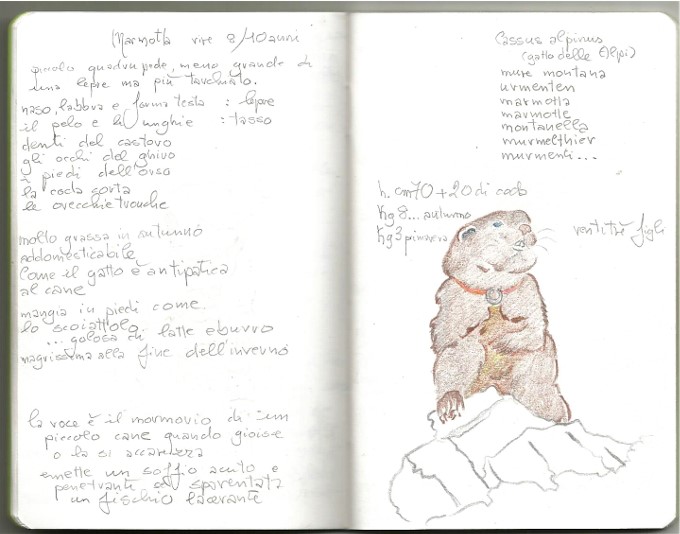 Marmotta vive 8/10 anni
piccolo quadrupede, meno grande di
una lepre ma più tarchiato.
naso, labbra e forma testa : lepre
il pelo e le unghie : tasso
denti del castoro
gli occhi del ghiro
i piedi dell'orso
la coda corta
le orecchie trouche
molto grassa in autunno
addomesticabile
come il gatto è antipatica
al cane
mangia in piedi come
lo scoiattolo
... golosa di latte e burro
magrissima alla fine dell'inverno
la voce è il mormorio di un
piccolo cane quando gioisce
o la si accarezza
emette un soffio acuto e
penetrante se spaventata
un fischio lacerante
Cassus alpinus
(gatto delle Alpi)
mure montana
urmenten
marmotta
marmotte
montanella
murmelthier
murmenti...
h. cm 70 + 20 di coda
Kg 8... autunno
Kg 3 primavera
ventitrè figli